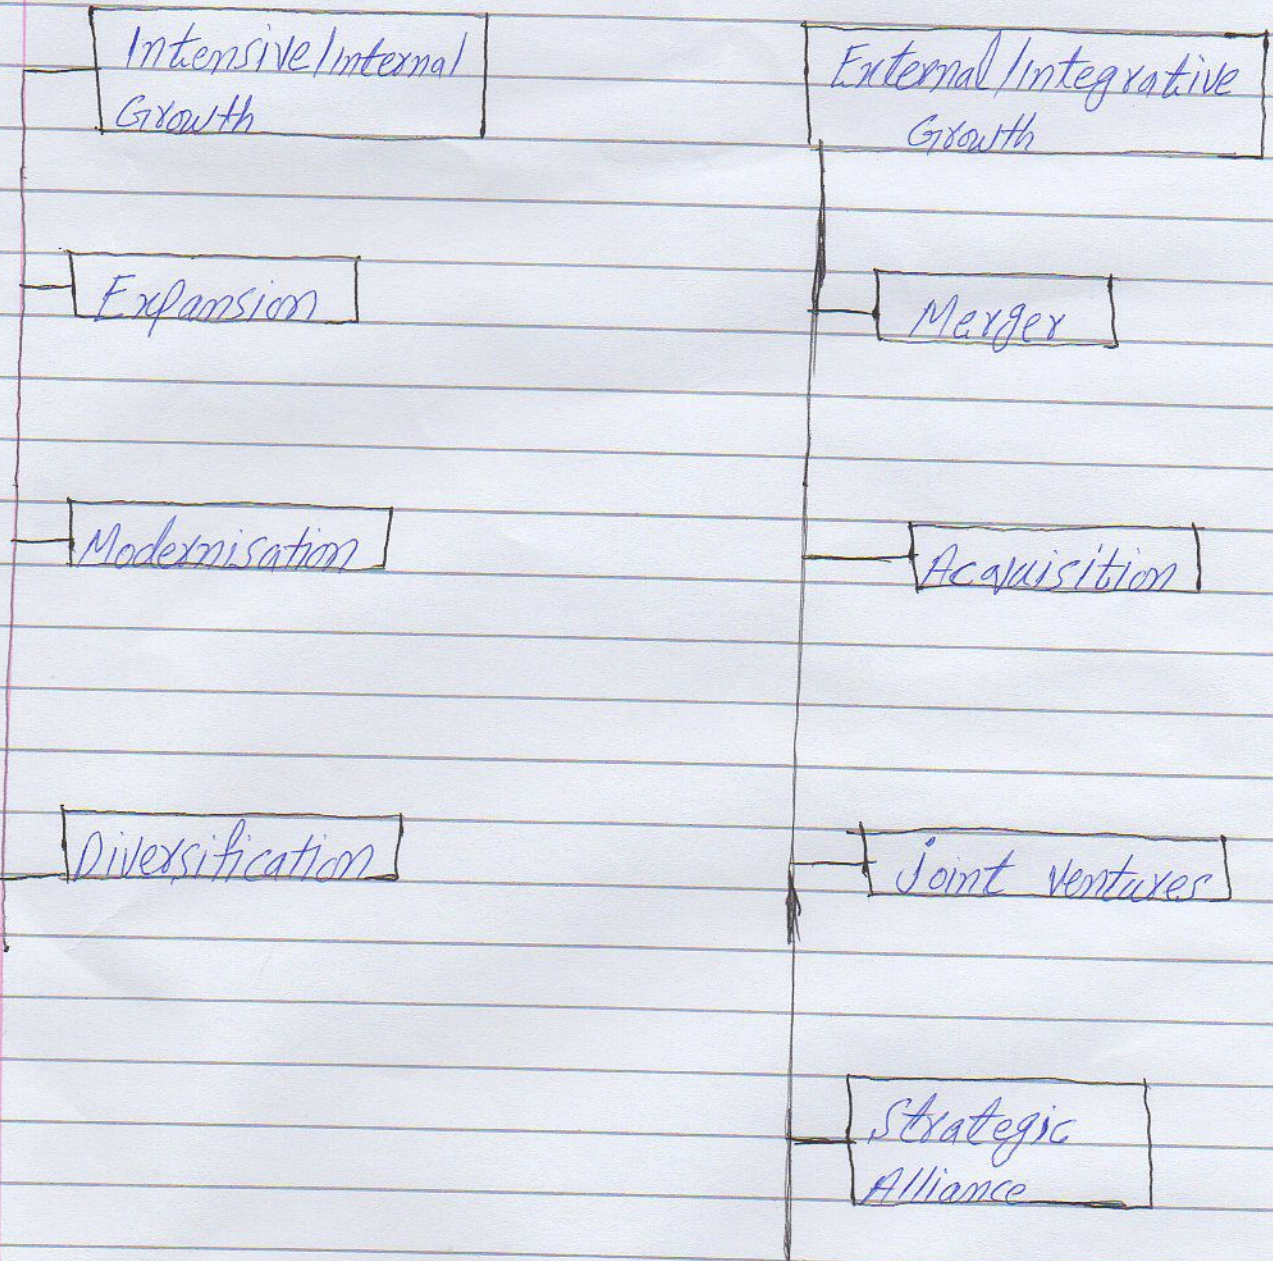 Intensive/Internal
Growth
Expansion
Modernisation
Diversification
External/Integrative
Growth
Merger
Acquisition
Joint ventures
Strategic
Alliance